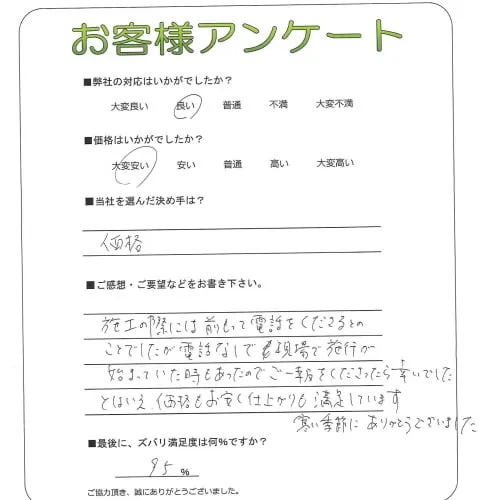 お客様アンケート
■弊社の対応はいかがでしたか?
大変良い 良い 普通 不満 大変不満
■価格はいかがでしたか?
大変安い 安い 普通 高い 大変高い
■当社を選んだ決め手は?
価格
■ご感想・ご要望などをお書き下さい。
施工の際には前もって電話をくださるとの
ことでしたが電話なしで現場で施行が
始まっていた時もあったのでご一報をくださったら幸いでした
とはいえ、価格もお安く仕上がりも満足しています
寒い季節にありがとうございました
■最後に、ズバリ満足度は何%ですか?
95 %
ご協力頂き、誠にありがとうございました。